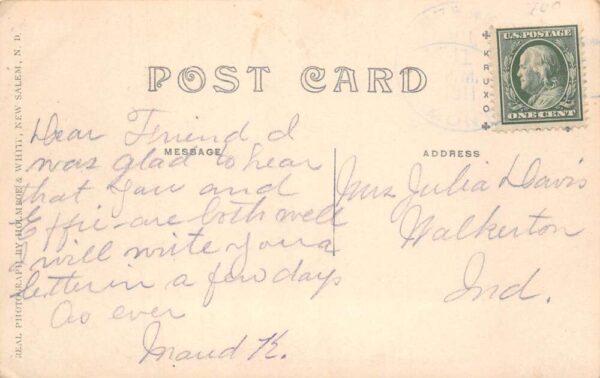 POST CARD
U.S. POSTAGE
ONE CENT
KRUXO
MESSAGE
Dear Friend I
was glad to hear
that you and
Effie are both well
I will write you a
letter in a few days
As ever
Maud K.
ADDRESS
Mrs Julia Davis
Walkerton
Ind.
REAL PHOTOGRAPH BY HOLMBOE & WHITE, NEW SALEM, N. D.